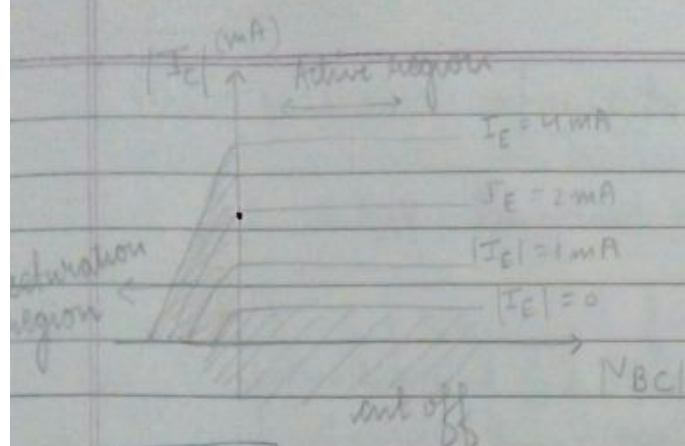 |I_C| (mA)
Active region
I_E = 4mA
I_E = 2mA
|I_E| = 1mA
saturation
region
|I_E| = 0
|V_BC|
cut off